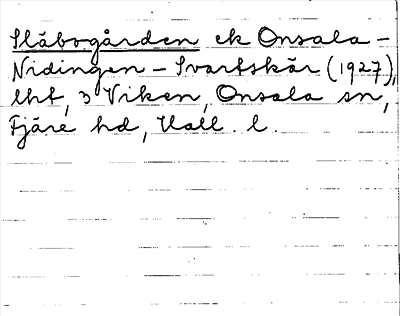 Släbogården ek Onsala -
Nidingen - Svartskär (1927),
lht, 3 Viken, Onsala sn,
Fjäre hd, Hall. l.